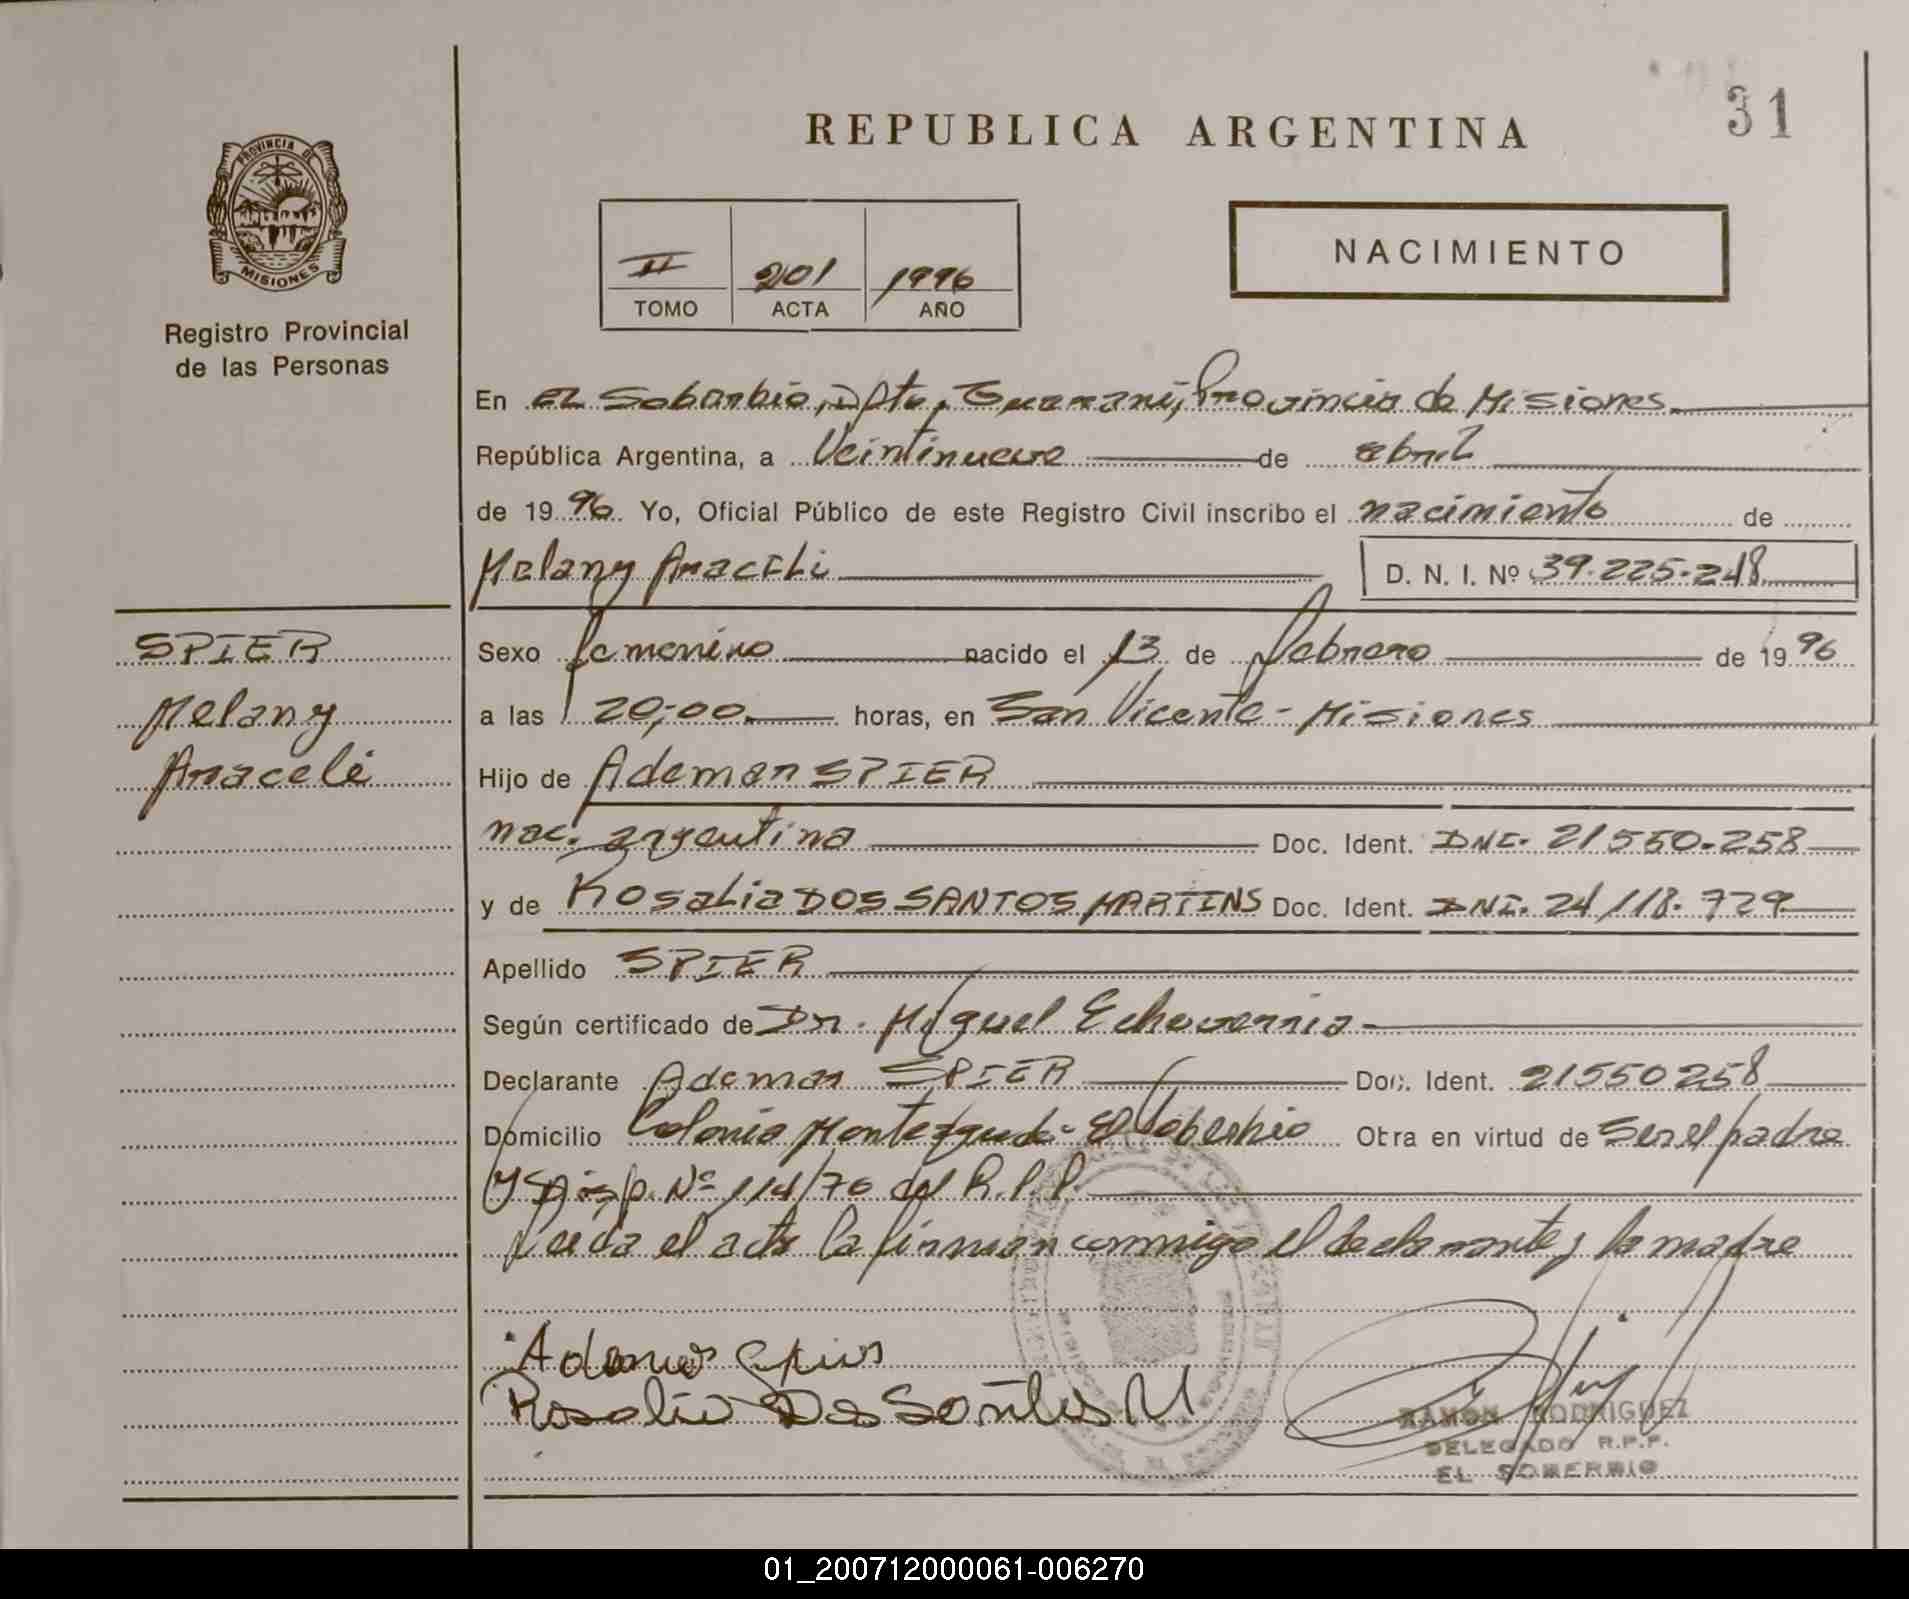 31
REPUBLICA ARGENTINA
PROVINCIA DE
MISIONES
Registro Provincial
de las Personas
II 201 1996
TOMO ACTA AÑO
NACIMIENTO
En El Soberbio, Dpto, Guarani, Provincia de Misiones
República Argentina, a Veintinueve de abril
de 1996 Yo, Oficial Público de este Registro Civil inscribo el nacimiento de
Melany Araceli D. N. I. Nº 39.225.248
SPIER
Melany
Araceli
Sexo femenino nacido el 13 de febrero de 1996
a las 20,00 horas, en San Vicente - Misiones
Hijo de Ademar SPIER
nac. argentina Doc. Ident. DNI. 21550.258
y de Rosalia DOS SANTOS MARTINS Doc. Ident. DNI. 24118.729
Apellido SPIER
Según certificado de Dr. Miguel Echeverria
Declarante Ademar SPIER Doc. Ident. 21550258
Domicilio Colonia - El Soberbio Obra en virtud de ser el padre
y Disp. Nº 114/76 del R.P.P.
Leída el acta la firman conmigo el declarante y la madre
Ademar Spier
Rosalia Dos Santos M
RAMON RODRIGUEZ
DELEGADO R.P.P.
EL SOBERBIO
01_200712000061-006270